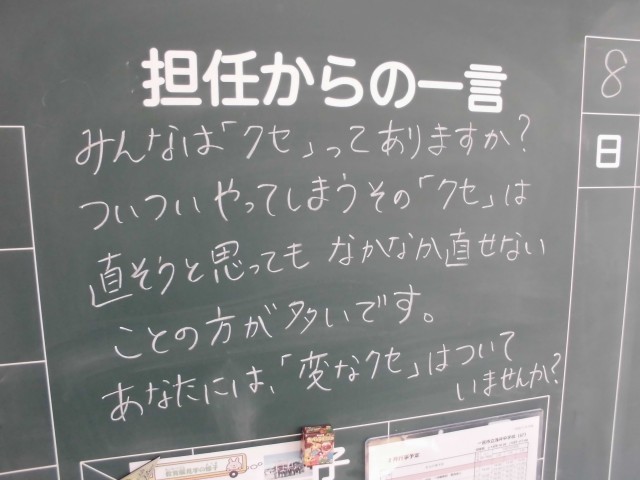 担任からの一言
8
日
みんなは「クセ」ってありますか?
ついついやってしまうその「クセ」は
直そうと思っても なかなか直せない
ことの方が多いです。
あなたには、「変なクセ」はついて
いませんか?